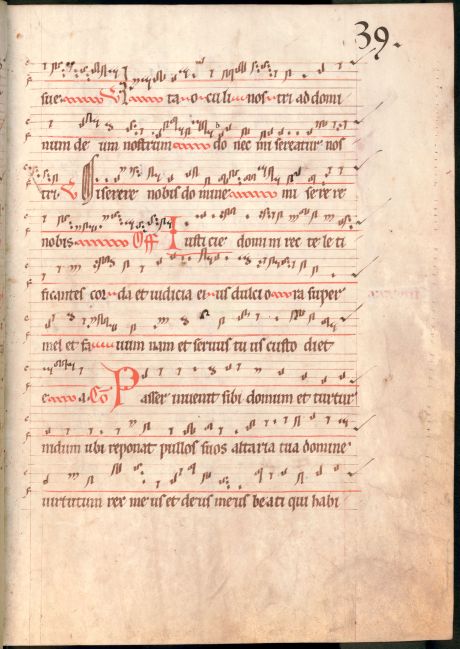 39.
sue V Ita oculi nostri ad domi
num deum nostrum donec misereatur nos
tri V Miserere nobis domine miserere
nobis Off Iusticie domini recte leti
ficantes corda et iudicia eius dulciora super
mel et fa uum nam et seruus tuus custodiet
ea Co Passer inuenit sibi domum et turtur
nidum ubi reponat pullos suos altaria tua domine
uirtutum rex meus et deus meus beati qui habi